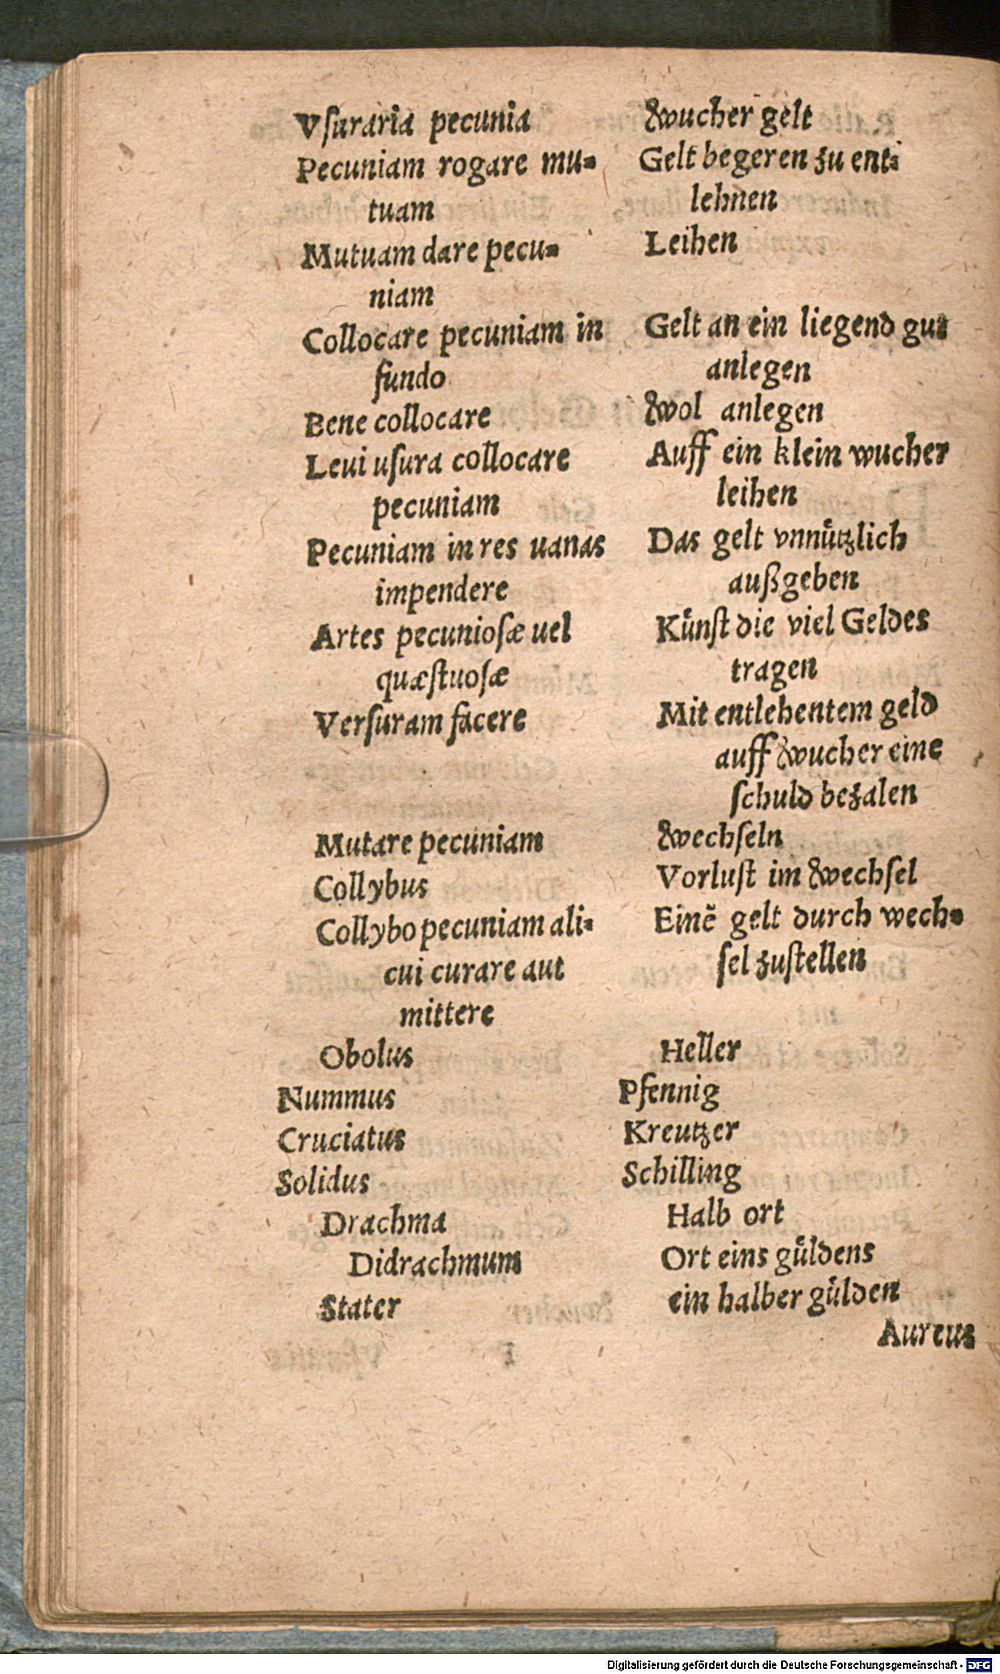 Vſuraria pecunia	Wucher gelt
Pecuniam rogare mu-	Gelt begeren zu ent-
tuam	lehnen
Mutuam dare pecu-	Leihen
niam
Collocare pecuniam in	Gelt an ein liegend gut
fundo	anlegen
Bene collocare	Wol anlegen
Leui uſura collocare	Auff ein klein wucher
pecuniam	leihen
Pecuniam in res uanas	Das gelt vnnuͤtzlich
impendere	außgeben
Artes pecunioſæ uel	Kuͤnſt die viel Geldes
quæſtuoſæ	tragen
Verſuram facere	Mit entlehentem geld
auff Wucher eine
ſchuld bezalen
Mutare pecuniam	Wechſeln
Collybus	Vorluſt im Wechſel
Collybo pecuniam ali-	Einẽ gelt durch wech-
cui curare aut	ſel zuſtellen
mittere
Obolus	Heller
Nummus	Pfennig
Cruciatus	Kreutzer
Solidus	Schilling
Drachma	Halb ort
Didrachmum	Ort eins guͤldens
Stater	ein halber guͤlden
Aureus
Digitalisierung gefördert durch die Deutsche Forschungsgemeinschaft - DFG